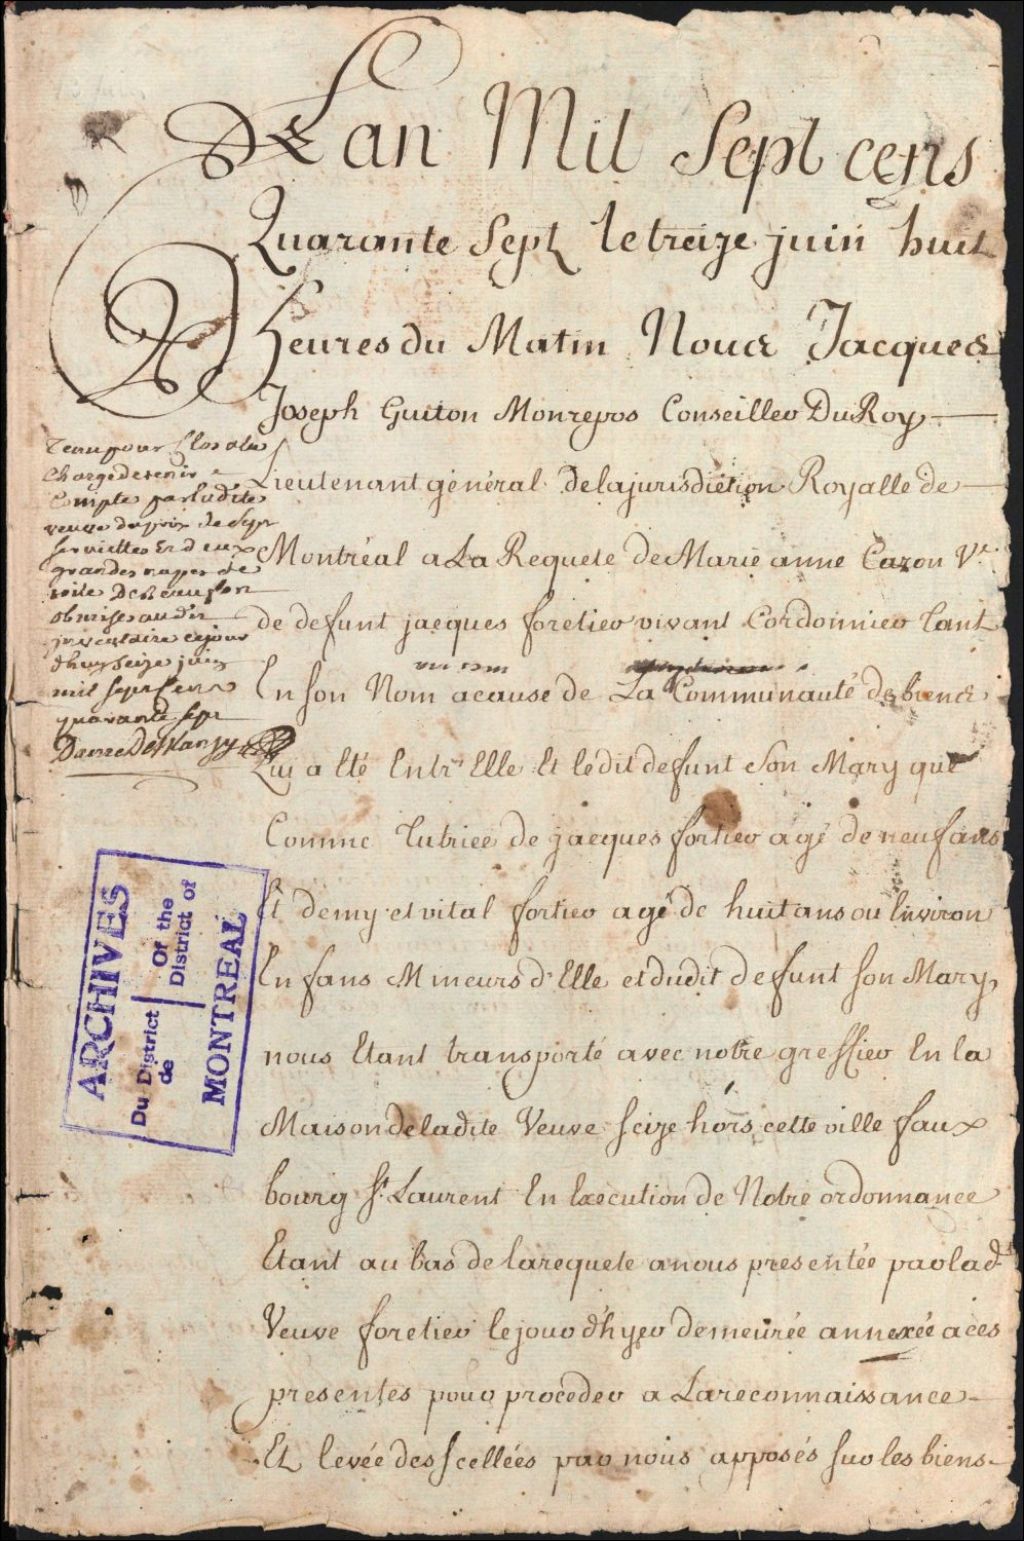 L'an Mil Sept cens
Quarante Sept le treize juin huit
heures du Matin Nous Jacques
Joseph Guiton Monrepos Conseiller Du Roy
Lieutenant général de la jurisdiction Royalle de
Montréal a La Requete de Marie anne Cazon Ve
de defunt jacques foretier vivant Cordonnier tant
En son Nom a cause de La Communauté de biens
Qui a Eté Entr'Elle Et le dit defunt Son Mary que
Comme tutrice de jacques fortier agé de neuf ans
Et demy et vital fortier agé de huit ans ou Environ
Enfans Mineurs d'Elle et dudit defunt son Mary
nous Etant transporté avec notre greffier En la
Maison de ladite Veuve seize hors cette ville faux
bourg St Laurent En Execution de Notre ordonnance
Etant au bas de la requete a nous presentée par lad
Veuve foretier le jour d'hyer demeurée annexée a ces
presentes pour proceder a La reconnaissance
Et levée des scellées par nous apposés sur les biens
Tenu pour Clos a la
Charge de tenir
Compte par ladite
veuve du prix de Sept
serviettes Et deux
grandes napes de
toile De Beaufort
obmises audit
inventaire ce jour
d'huy seize juin
mil sept cens
quarante sept
ARCHIVES
Du District de
Of the District of
MONTREAL